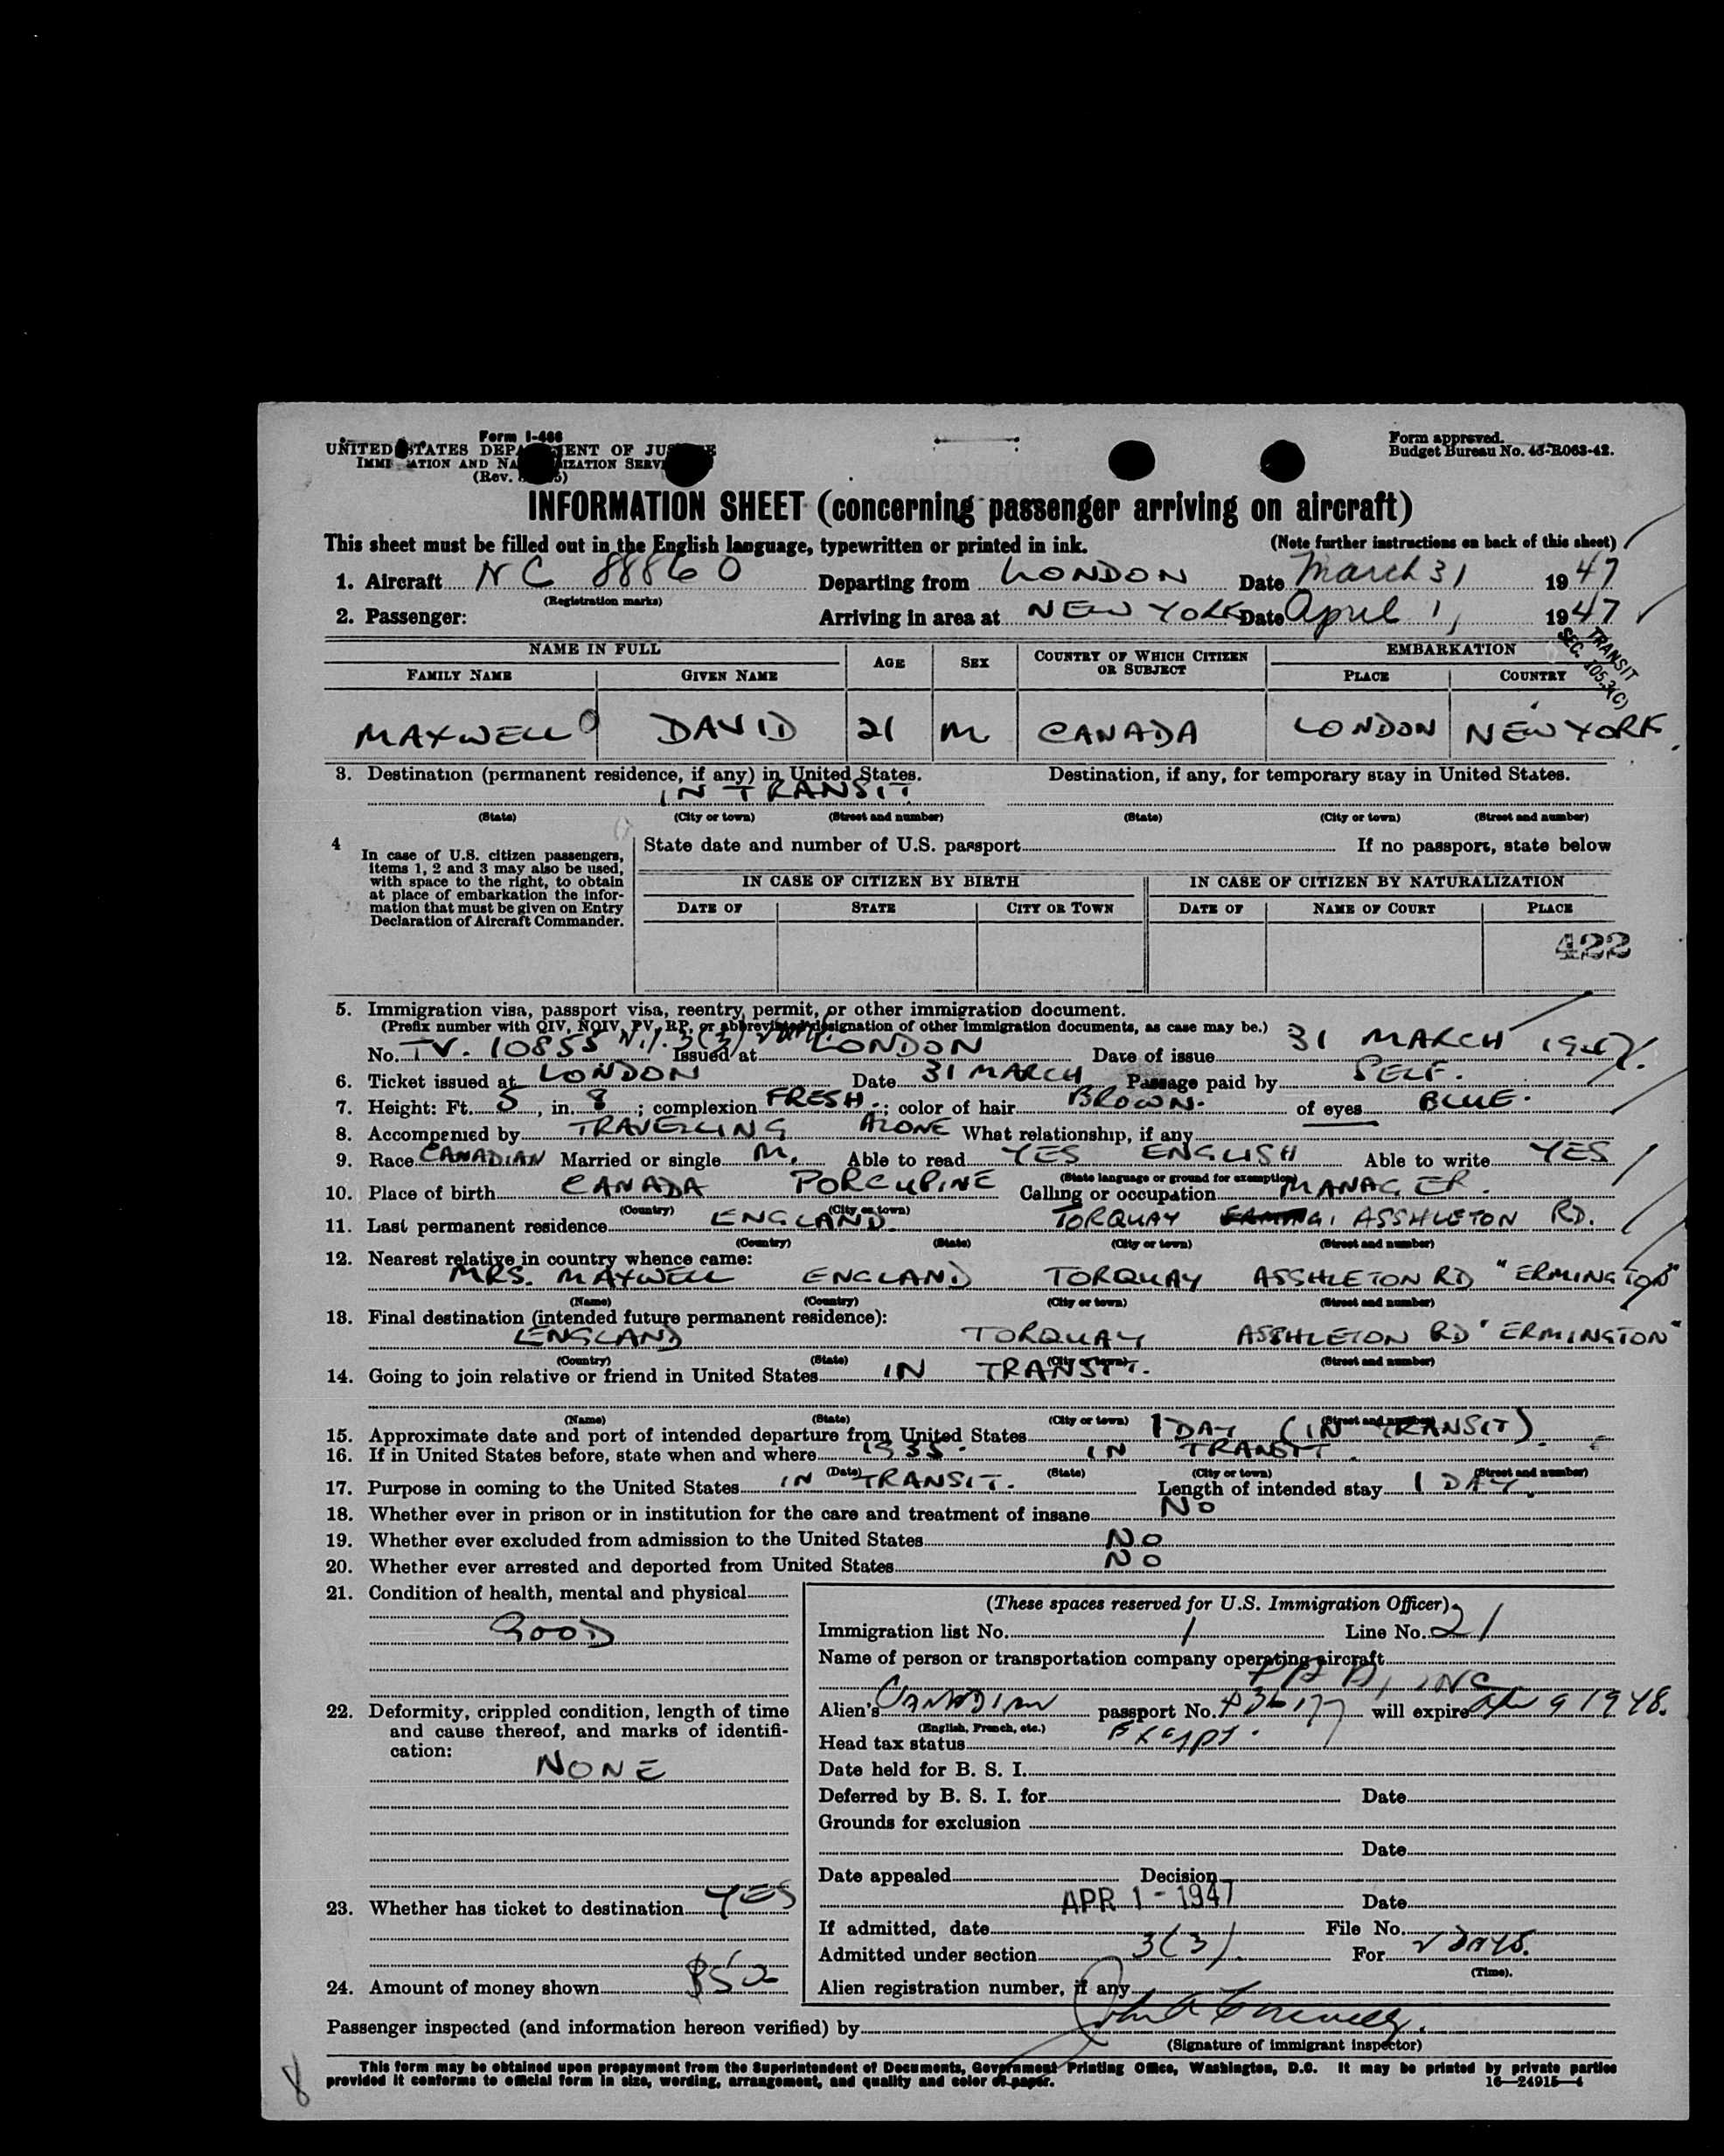 Form I-466
UNITED STATES DEPARTMENT OF JUSTICE
IMMIGRATION AND NATURALIZATION SERVICE
(Rev.
Form approved.
Budget Bureau No. 43-R063-42.
INFORMATION SHEET (concerning passenger arriving on aircraft)
This sheet must be filled out in the English language, typewritten or printed in ink. (Note further instructions on back of this sheet)
1. Aircraft NC 88860 Departing from LONDON Date March 31 1947
(Registration marks)
2. Passenger: Arriving in area at NEW YORK Date April 1, 1947
TRANSIT
SEC. 105.3(C)
NAME IN FULL AGE SEX COUNTRY OF WHICH CITIZEN OR SUBJECT EMBARKATION
FAMILY NAME GIVEN NAME PLACE COUNTRY
MAXWELL DAVID 21 M CANADA LONDON NEW YORK.
3. Destination (permanent residence, if any) in United States. Destination, if any, for temporary stay in United States.
IN TRANSIT
(State) (City or town) (Street and number) (State) (City or town) (Street and number)
4 In case of U.S. citizen passengers, items 1, 2 and 3 may also be used, with space to the right, to obtain at place of embarkation the information that must be given on Entry Declaration of Aircraft Commander.
State date and number of U.S. passport If no passport, state below
IN CASE OF CITIZEN BY BIRTH IN CASE OF CITIZEN BY NATURALIZATION
DATE OF STATE CITY OR TOWN DATE OF NAME OF COURT PLACE
422
5. Immigration visa, passport visa, reentry permit, or other immigration document.
(Prefix number with QIV, NQIV, PV, RP, or abbreviated designation of other immigration documents, as case may be.)
No. TV. 10855 N.I. 3(3) Issued at LONDON Date of issue 31 MARCH 1947.
6. Ticket issued at LONDON Date 31 MARCH Passage paid by SELF.
7. Height: Ft. 5, in. 8; complexion FRESH.; color of hair BROWN. of eyes BLUE.
8. Accompenied by TRAVELLING ALONE What relationship, if any
9. Race CANADIAN Married or single M. Able to read YES ENGLISH Able to write YES
(State language or ground for exemption)
10. Place of birth CANADA PORCUPINE Calling or occupation MANAGER.
(Country) (City or town)
11. Last permanent residence ENGLAND TORQUAY ASSHLETON RD.
(Country) (State) (City or town) (Street and number)
12. Nearest relative in country whence came:
MRS. MAXWELL ENGLAND TORQUAY ASSHLETON RD "ERMINGTON"
(Name) (Country) (City or town) (Street and number)
13. Final destination (intended future permanent residence):
ENGLAND TORQUAY ASSHLETON RD "ERMINGTON"
(Country) (State) (City or town) (Street and number)
14. Going to join relative or friend in United States IN TRANSIT.
(Name) (State) (City or town) (Street and number)
15. Approximate date and port of intended departure from United States 1 DAY (IN TRANSIT).
16. If in United States before, state when and where 1935. IN TRANSIT.
(Date) (State) (City or town) (Street and number)
17. Purpose in coming to the United States IN TRANSIT. Length of intended stay 1 DAY.
18. Whether ever in prison or in institution for the care and treatment of insane NO
19. Whether ever excluded from admission to the United States NO
20. Whether ever arrested and deported from United States NO
21. Condition of health, mental and physical
GOOD
22. Deformity, crippled condition, length of time and cause thereof, and marks of identification:
NONE
23. Whether has ticket to destination YES
24. Amount of money shown $50
(These spaces reserved for U.S. Immigration Officer)
Immigration list No. 1 Line No. 21
Name of person or transportation company operating aircraft
INC
Alien's CANADIAN passport No. will expire 9 1948.
(English, French, etc.)
Head tax status Exempt.
Date held for B. S. I.
Deferred by B. S. I. for Date
Grounds for exclusion
Date
Date appealed Decision
APR 1 - 1947 Date
If admitted, date File No.
Admitted under section 3(3). For 2 DAYS.
(Time).
Alien registration number, if any
Passenger inspected (and information hereon verified) by
(Signature of immigrant inspector)
This form may be obtained upon prepayment from the Superintendent of Documents, Government Printing Office, Washington, D.C. It may be printed by private parties
provided it conforms to official form in size, wording, arrangement, and quality and color of paper. 16—24915-4
8